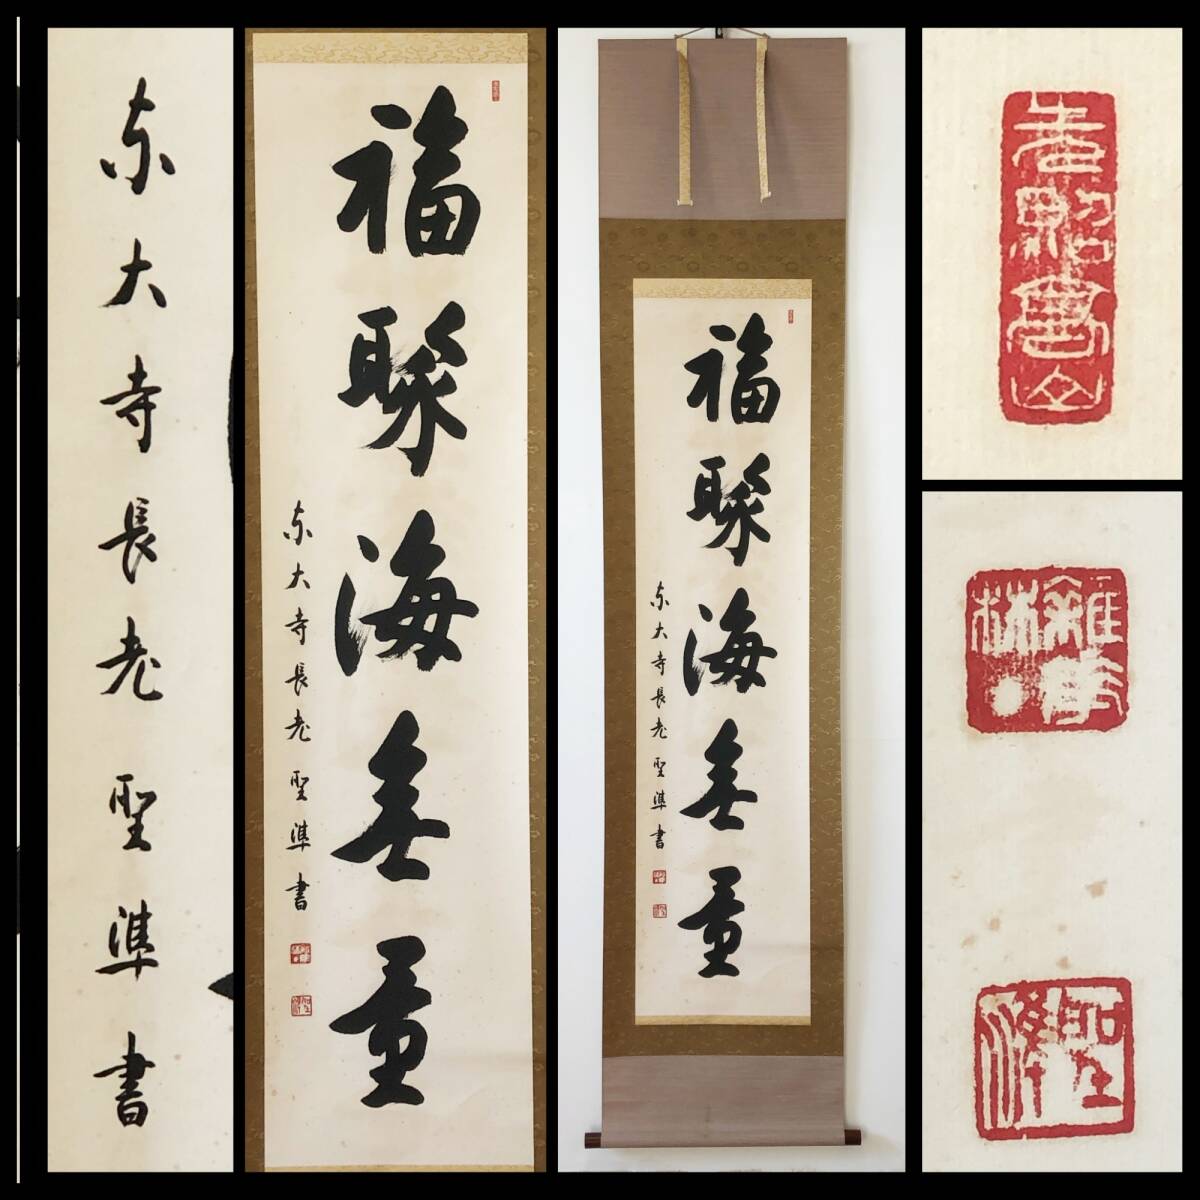 東大寺長老聖準書
福聚海無量
東大寺長老 聖準書
福聚海無量
東大寺長老 聖準書
聖準